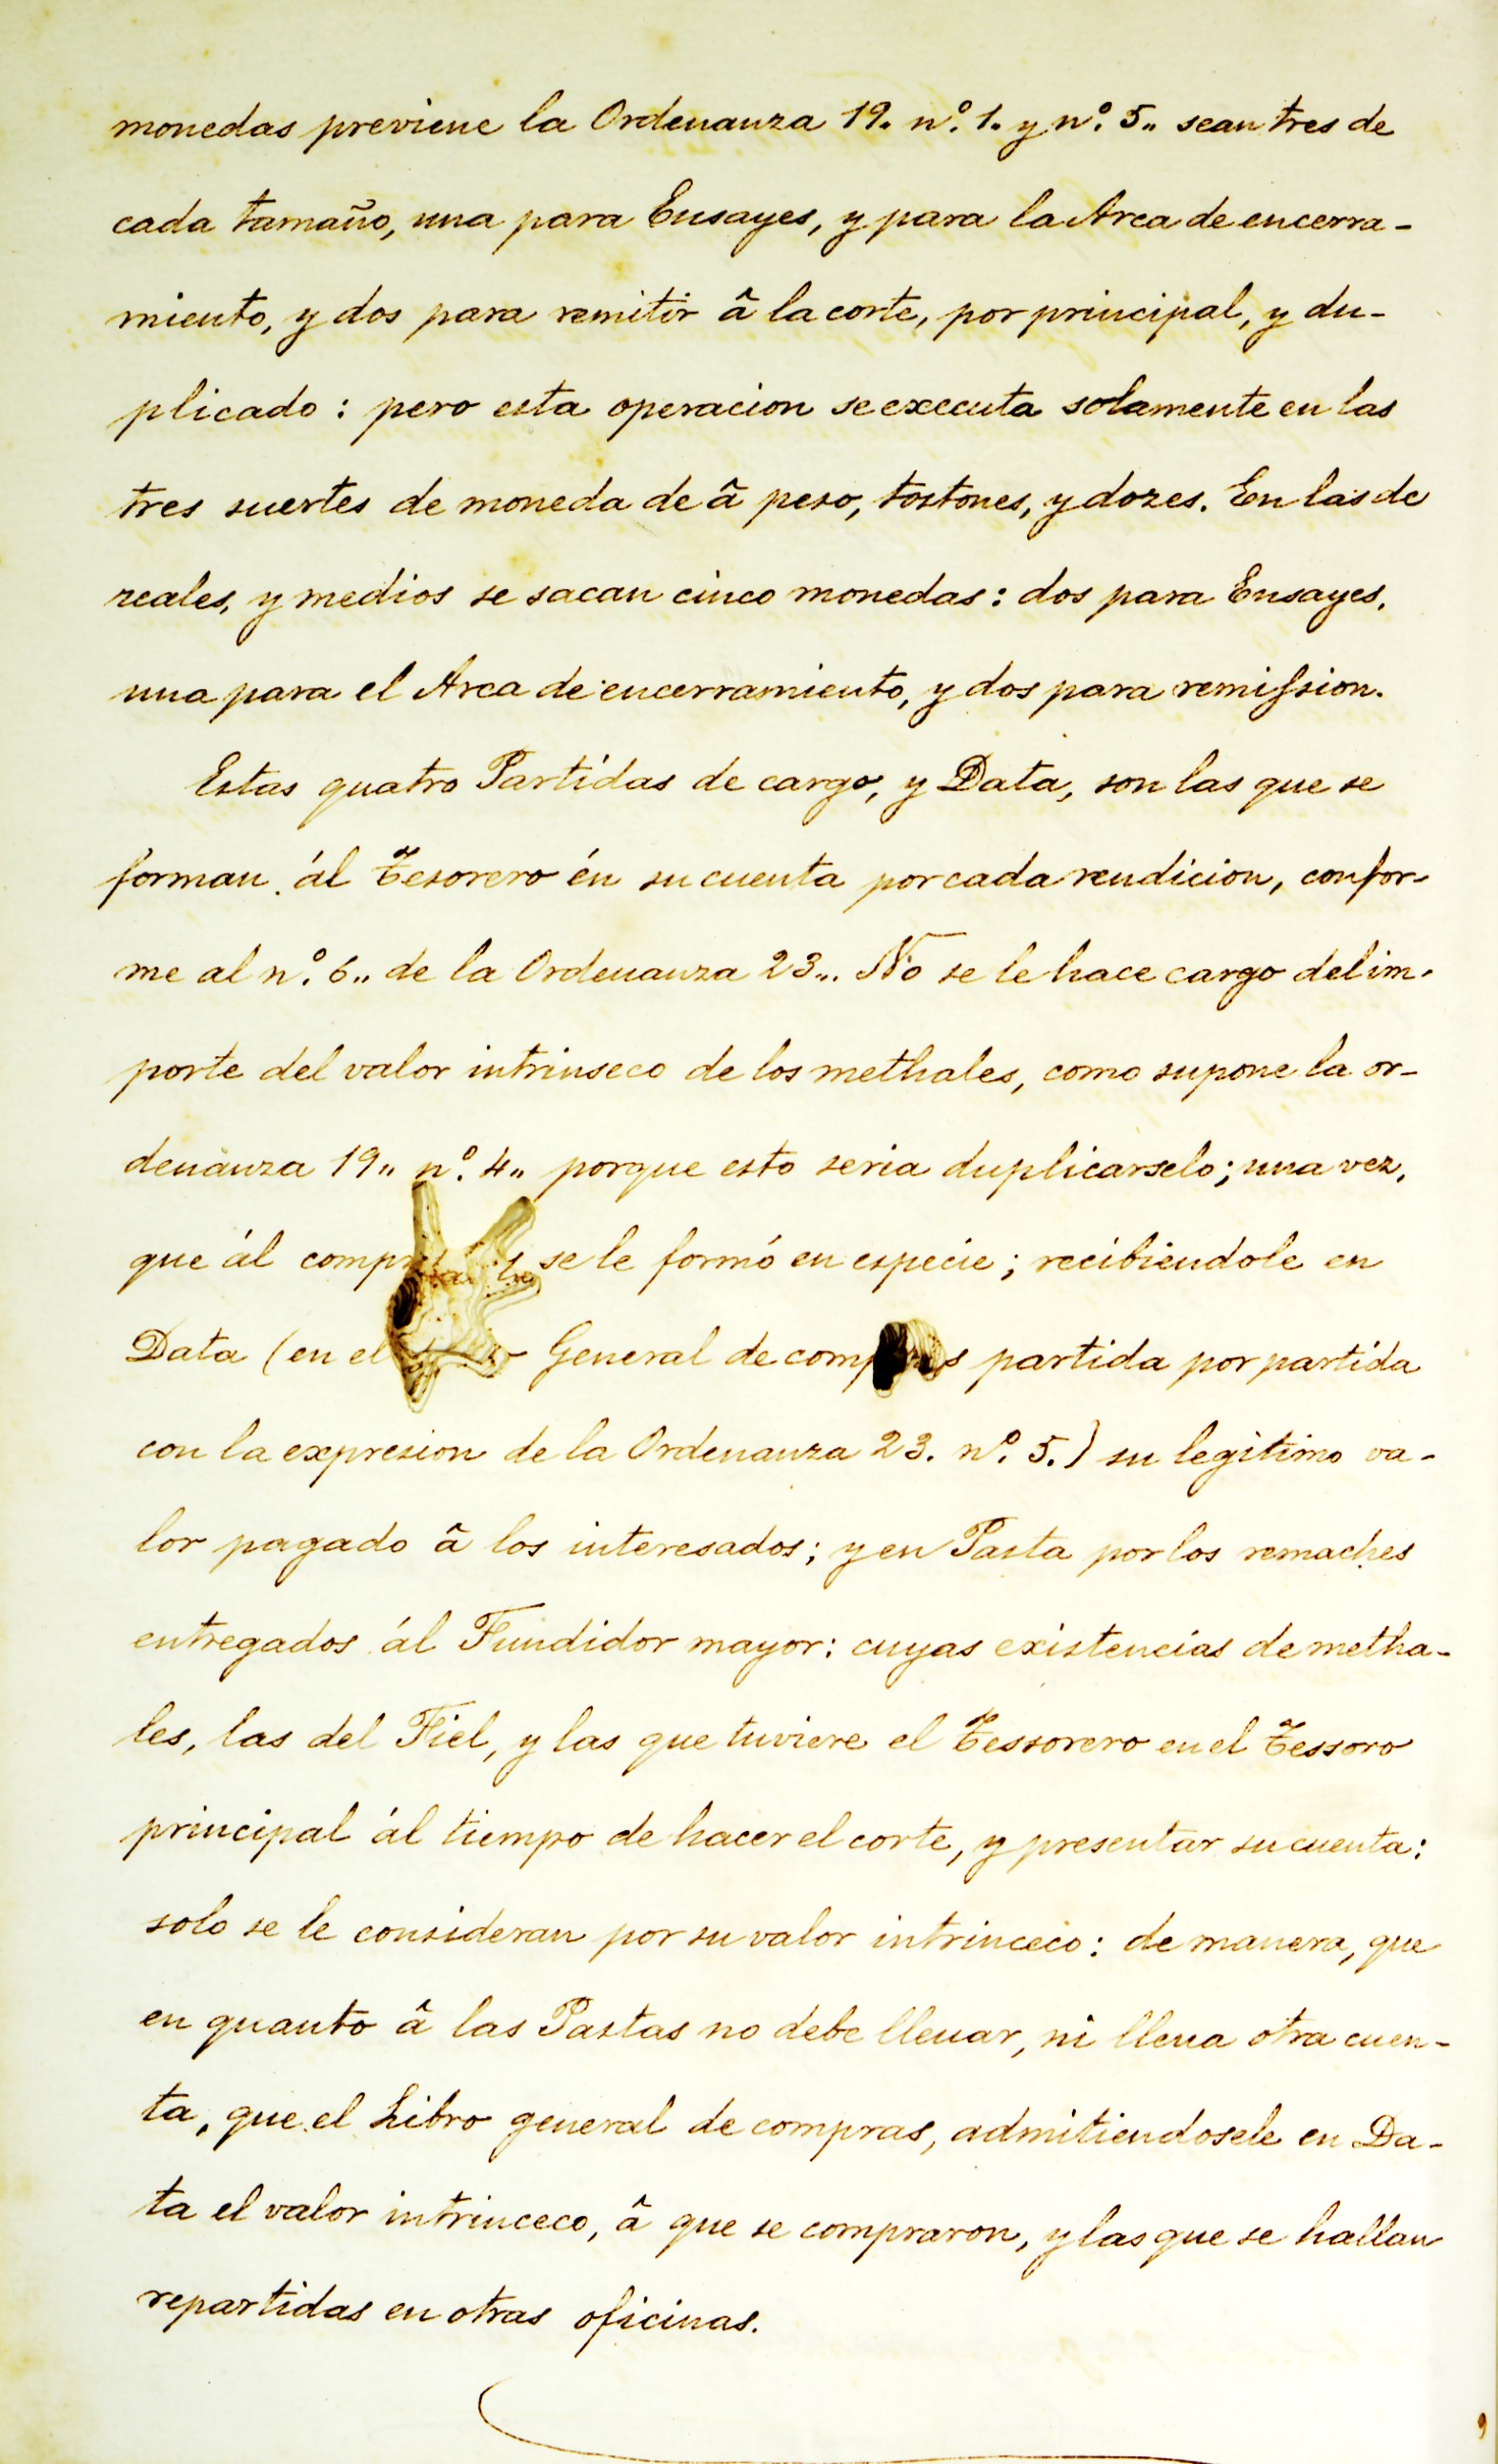 monedas previene la Ordenanza 19. nº. 1. y nº. 5.. sean tres de
cada tamaño, una para Ensayes, y para la Arca de encerra-
miento, y dos para remitir â la corte, por principal, y du-
plicado: pero esta operacion se executa solamente en las
tres suertes de moneda de â peso, tostones, y dozes. En las de
reales, y medios se sacan cinco monedas: dos para Ensayes,
una para el Arca de encerramiento, y dos para remission.
Estas quatro Partidas de cargo, y Data, son las que se
forman ál Tesorero én su cuenta por cada rendicion, confor-
me al nº. 6.. de la Ordenanza 23... No se le hace cargo del im-
porte del valor intrinseco de los methales, como supone la or-
denanza 19.. nº. 4.. porque esto seria duplicarselo; una vez,
que ál se le formó en especie; recibiendole en
Data (en el General de compras partida por partida
con la expresion de la Ordenanza 23. nº. 5.) su legitimo va-
lor pagado â los interesados; y en Pasta por los remaches
entregados ál Fundidor mayor: cuyas existencias de metha-
les, las del Fiel, y las que tuviere el Tessorero en el Tessoro
principal ál tiempo de hacer el corte, y presentar su cuenta:
solo se le consideran por su valor intrinceco: de manera, que
en quanto â las Pastas no debe lleuar, ni lleua otra cuen-
ta, que el Libro general de compras, admitiendosele en Da-
ta el valor intrinceco, â que se compraron, y las que se hallan
repartidas en otras oficinas.